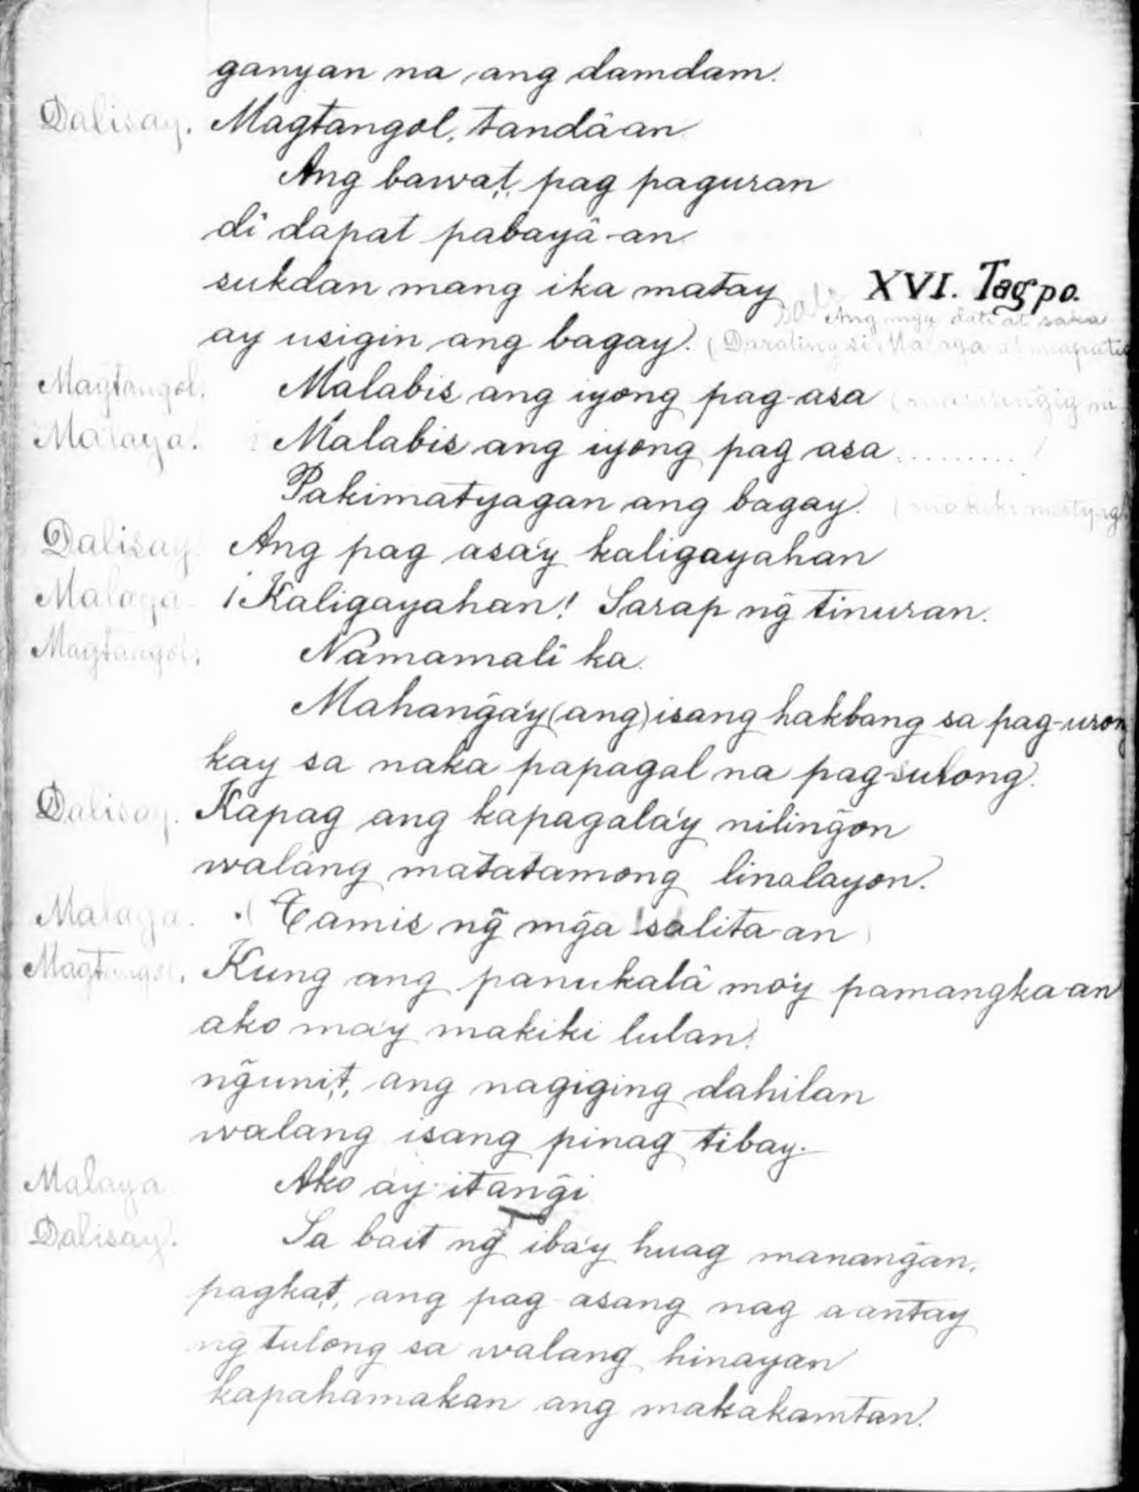 ganyan na ang damdam.
Dalisay. Magtangol, tandâan
Ang bawat, pag paguran
di dapat pabayâ-an
sukdan mang ika matay
XVI. Tagpo.
Ang mga dati at saka
ay usigin ang bagay. (Darating si Malaya at
Magtangol. Malabis ang iyong pag-asa
Malaya. Malabis ang iyong pag asa.........
Pakimatyagan ang bagay.
Dalisay. Ang pag asa'y kaligayahan
Malaya. ¡Kaligayahan! Sarap ng̃ tinuran.
Magtangol. Namamali ka.
Mahang̃a'y (ang) isang hakbang sa pag-urong
kay sa naka papagal na pag-sulong.
Dalisay. Kapag ang kapagala'y niling̃on
walang matatamong linalayon.
Malaya. (Tamis ng̃ mg̃a salita-an)
Magtangol. Kung ang panukalâ mo'y pamangka-an
ako ma'y makiki lulan!
ng̃unit, ang nagiging dahilan
walang isang pinag tibay.
Malaya. Ako ay itang̃i
Dalisay. Sa bait ng̃ iba'y huag manang̃an,
pagkat, ang pag-asang nag aantay
ng̃ tulong sa walang hinayan
kapahamakan ang makakamtan!